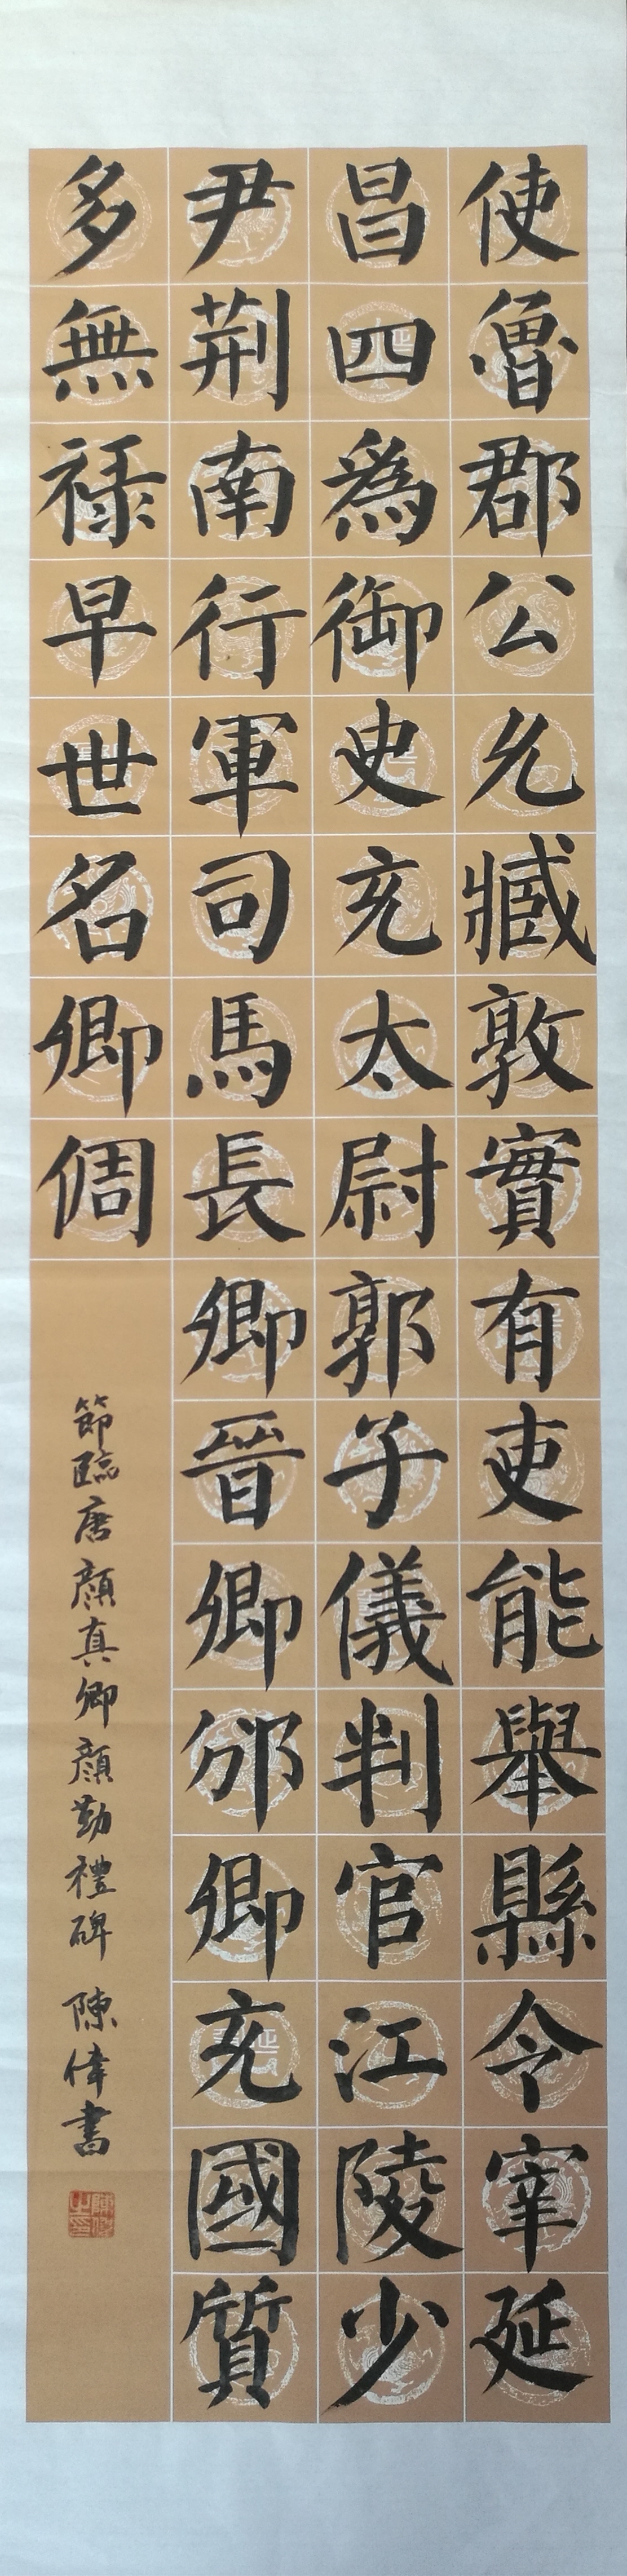 使魯郡公允臧敦實有吏能舉縣令宰延
昌四為御史充太尉郭子儀判官江陵少
尹荆南行軍司馬長卿晉卿邠卿充國質
多無禄早世名卿倜
節臨唐顏真卿顏勤禮碑 陳偉書